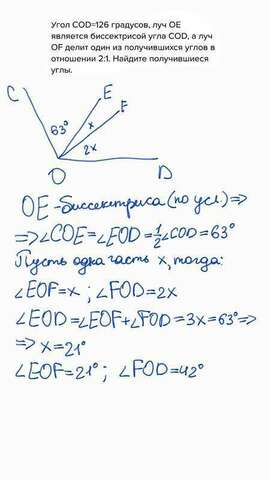 Угол COD=126 градусов, луч OE
является биссектрисой угла COD, а луч
OF делит один из получившихся углов в
отношении 2:1. Найдите получившиеся
углы.
C
E
F
63°
x
2x
O
D
OE-биссектриса (по усл.)⇒
⇒∠COE=∠EOD=½∠COD=63°
Пусть одна часть x, тогда:
∠EOF=x ; ∠FOD=2x
∠EOD=∠EOF+∠FOD=3x=63°⇒
⇒ x=21°
∠EOF=21° ; ∠FOD=42°